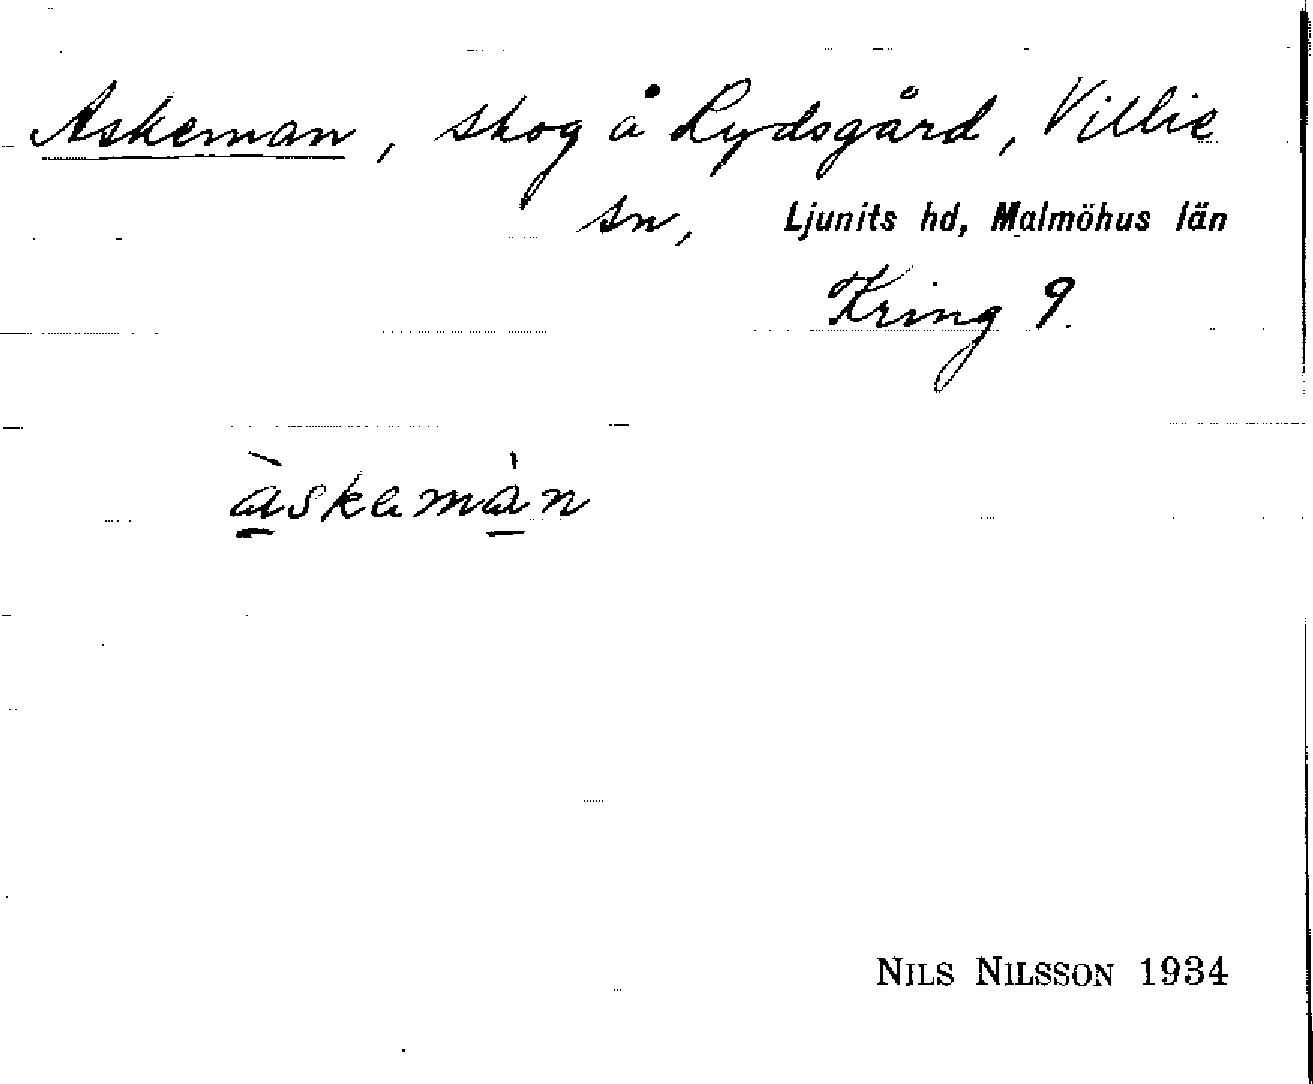 Askeman, skog å Rydsgård, Villie
sn, Ljunits hd, Malmöhus län
Kring 9.
àskamàn
NILS NILSSON 1934